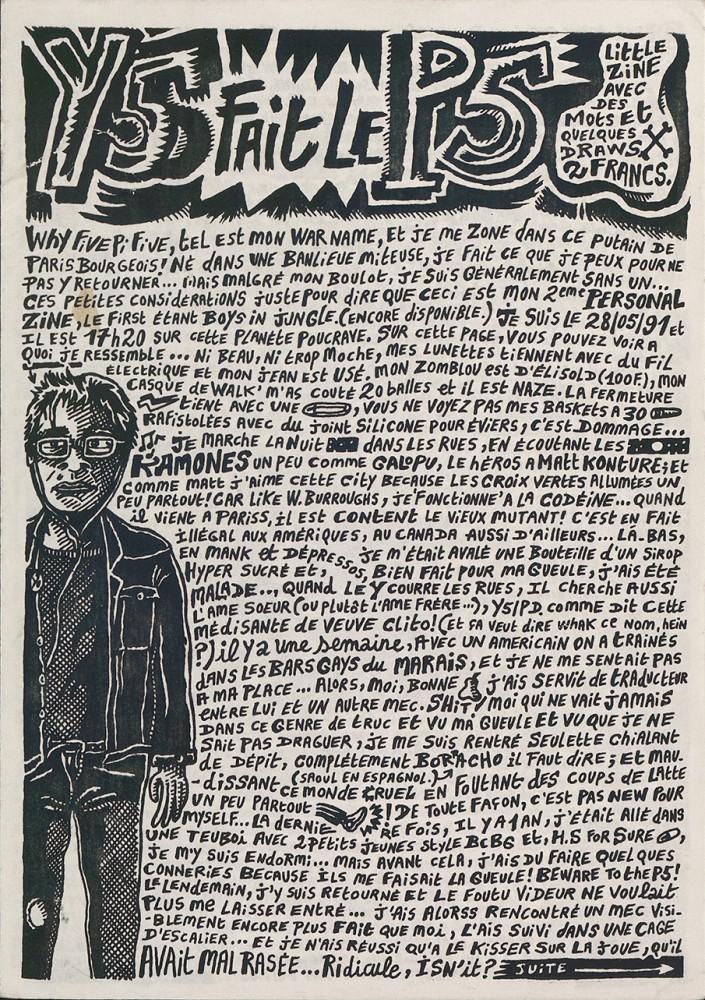 Y5 FAIT LE P5
LITTLE
ZINE
AVEC
DES
MOTS ET
QUELQUES
DRAWS
2 FRANCS.
WHY FIVE PI FIVE, TEL EST MON WAR NAME, ET JE ME ZONE DANS CE PUTAIN DE
PARIS BOURGEOIS! NÉ DANS UNE BANLIEUE MITEUSE, JE FAIT CE QUE JE PEUX POUR NE
PAS Y RETOURNER... MAIS MALGRÉ MON BOULOT, JE SUIS GÉNÉRALEMENT SANS UN...
CES PETITES CONSIDÉRATIONS JUSTE POUR DIRE QUE CECI EST MON 2eme PERSONAL
ZINE, LE FIRST ÉTANT BOYS IN JUNGLE. (ENCORE DISPONIBLE.) JE SUIS LE 28/05/91 ET
IL EST 17h20 SUR CETTE PLANÈTE POUCRAVE. SUR CETTE PAGE, VOUS POUVEZ VOIR A
QUOI JE RESSEMBLE... NI BEAU, NI TROP MOCHE, MES LUNETTES TIENNENT AVEC DU FIL
ÉLECTRIQUE ET MON JEAN EST USÉ. MON ZOMBLOU EST D'ÉLISOLD (100F.), MON
CASQUE DE WALK' M'AS COUTÉ 20 BALLES ET IL EST NAZE. LA FERMETURE
TIENT AVEC UNE, VOUS NE VOYEZ PAS MES BASKETS A 30
RAFISTOLÉES AVEC DU JOINT SILICONE POUR ÉVIERS, C'EST DOMMAGE...
JE MARCHE LA NUIT DANS LES RUES, EN ÉCOUTANT LES
RAMONES UN PEU COMME GALOPU, LE HÉROS A MATT KONTURE; ET
COMME MATT J'AIME CETTE CITY BECAUSE LES CROIX VERTES ALLUMÉES UN
PEU PARTOUT! CAR LIKE W. BURROUGHS, JE FONCTIONNE A LA CODÉINE... QUAND
IL VIENT A PARISS, IL EST CONTENT LE VIEUX MUTANT! C'EST EN FAIT
ILLÉGAL AUX AMÉRIQUES, AU CANADA AUSSI D'AILLEURS... LÀ-BAS,
EN MANK ET DÉPRESSOS, JE M'ÉTAIT AVALÉ UNE BOUTEILLE D'UN SIROP
HYPER SUCRÉ ET, BIEN FAIT POUR MA GUEULE, J'AIS ÉTÉ
MALADE.., QUAND LE Y COURRE LES RUES, IL CHERCHE AUSSI
L'AME SOEUR (OU PLUTÔT L'AME FRÈRE...), Y5/PD. COMME DIT CETTE
MÉDISANTE DE VEUVE CLITO! (ET SA VEUT DIRE WHAK CE NOM, HEIN
?) IL Y A UNE SEMAINE, AVEC UN AMERICAIN ON A TRAINÉS
DANS LES BARS GAYS DU MARAIS, ET JE NE ME SENTAIT PAS
A MA PLACE... ALORS, MOI, BONNE J'AIS SERVIT DE TRADUCTEUR
ENTRE LUI ET UN AUTRE MEC. SHIT! MOI QUI NE VAIT JAMAIS
DANS CE GENRE DE TRUC ET VU MA GUEULE ET VU QUE JE NE
SAIT PAS DRAGUER, JE ME SUIS RENTRÉ SEULETTE CHIALANT
DE DÉPIT, COMPLÈTEMENT BORACHO IL FAUT DIRE; ET MAU-
-DISSANT (SAOUL EN ESPAGNOL.) CE MONDE CRUEL EN FOUTANT DES COUPS DE LATTE
UN PEU PARTOUT! DE TOUTE FAÇON, C'EST PAS NEW POUR
MYSELF... LA DERNIÈRE FOIS, IL Y A 1 AN, J'ÉTAIT ALLÉ DANS
UNE TEUBOI AVEC 2 PETITS JEUNES STYLE BCBG ET, H.S FOR SURE,
JE M'Y SUIS ENDORMI... MAIS AVANT CELA, J'AIS DU FAIRE QUELQUES
CONNERIES BECAUSE ILS ME FAISAIT LA GUEULE! BEWARE TO THE P5!
LE LENDEMAIN, J'Y SUIS RETOURNÉ ET LE FOUTU VIDEUR NE VOULAIT
PLUS ME LAISSER ENTRÉ... J'AIS ALORSS RENCONTRÉ UN MEC VISI-
-BLEMENT ENCORE PLUS FAIT QUE MOI, L'AIS SUIVI DANS UNE CAGE
D'ESCALIER... ET JE N'AIS RÉUSSI QU'A LE KISSER SUR LA JOUE, QU'IL
AVAIT MAL RASÉE... RIDICULE, ISN'IT? SUITE